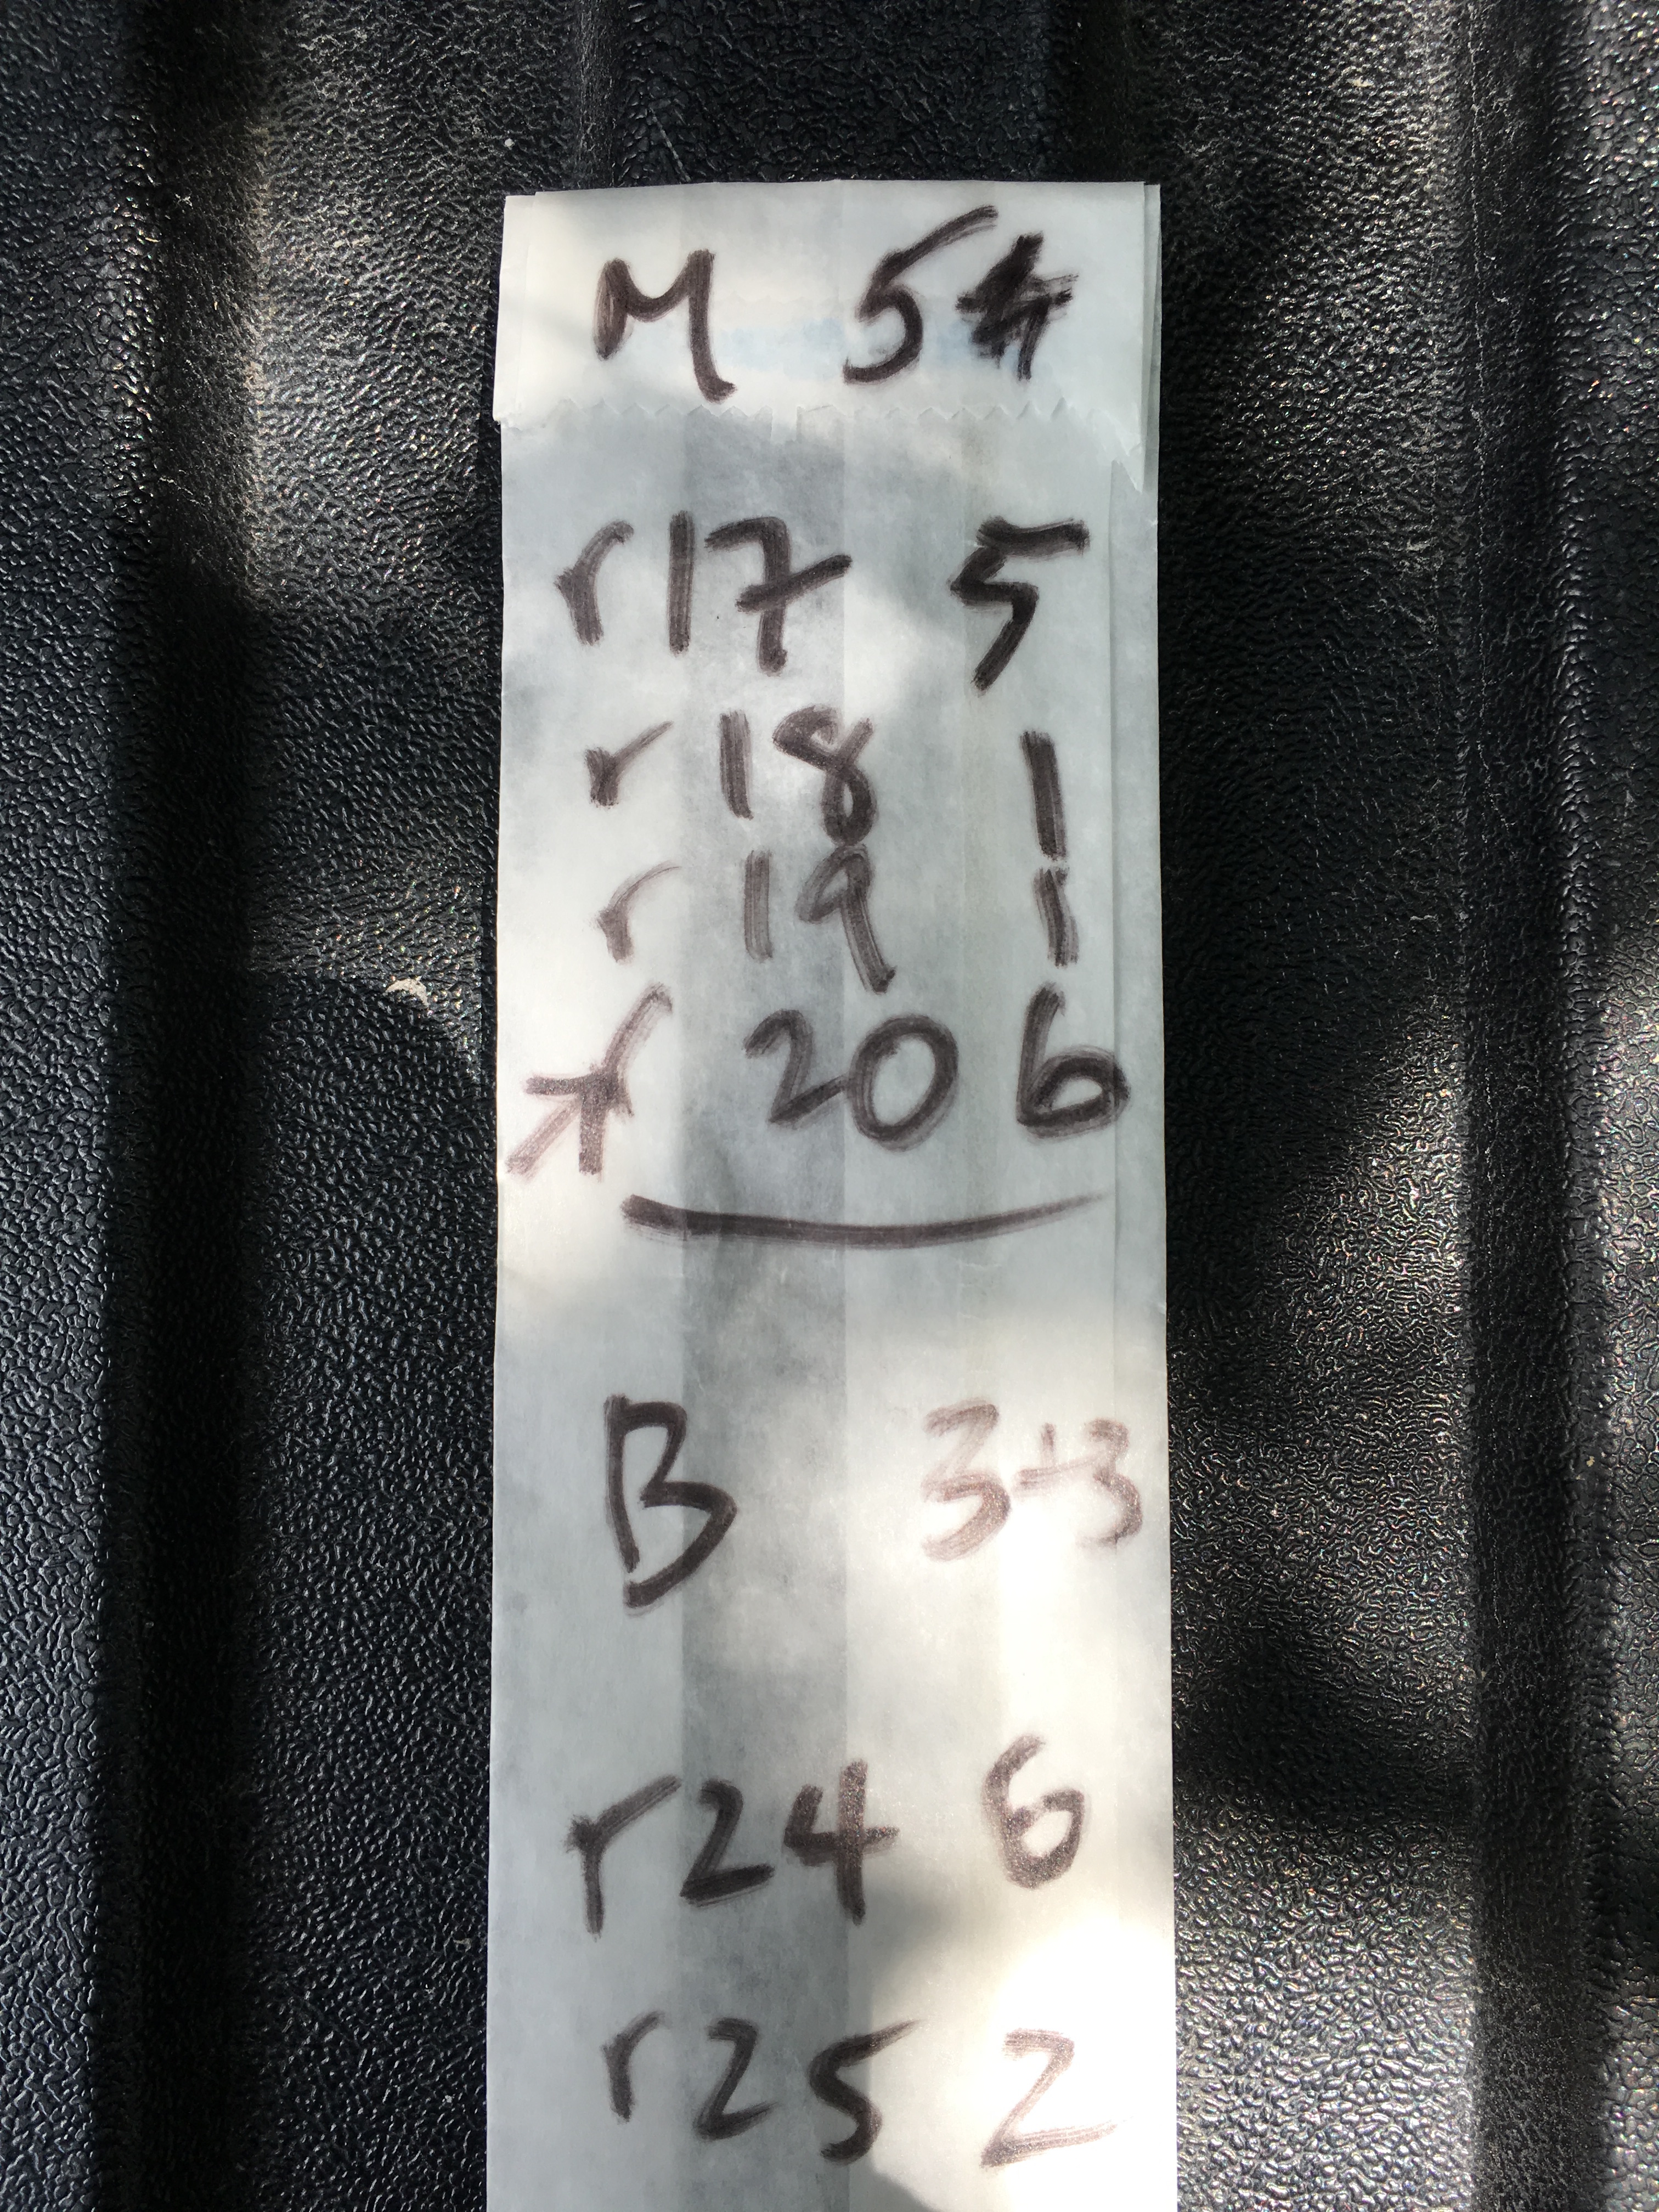 M 5
r17 5
r 18 1
r 19 1
r 20 6
B 3+3
r24 6
r25 2